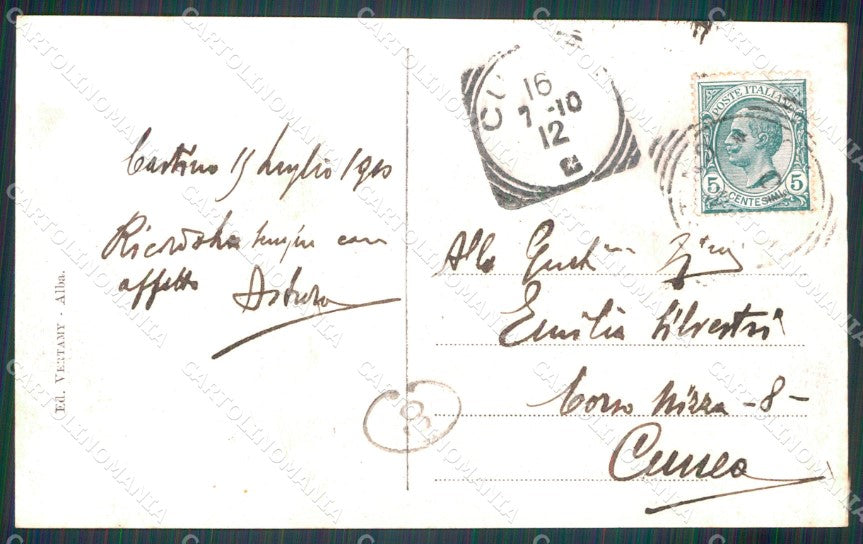 15 luglio 1910
Ricordoti sempre con
affetto Arturo
Ed. VERTAMY - Alba.
CU
16
7-10
12
POSTE ITALIANE
5 5
CENTESIMI
Alla
Emilia Silvestri
Corso Nizza - 8 -
Cuneo
CARTOLINOMANIA